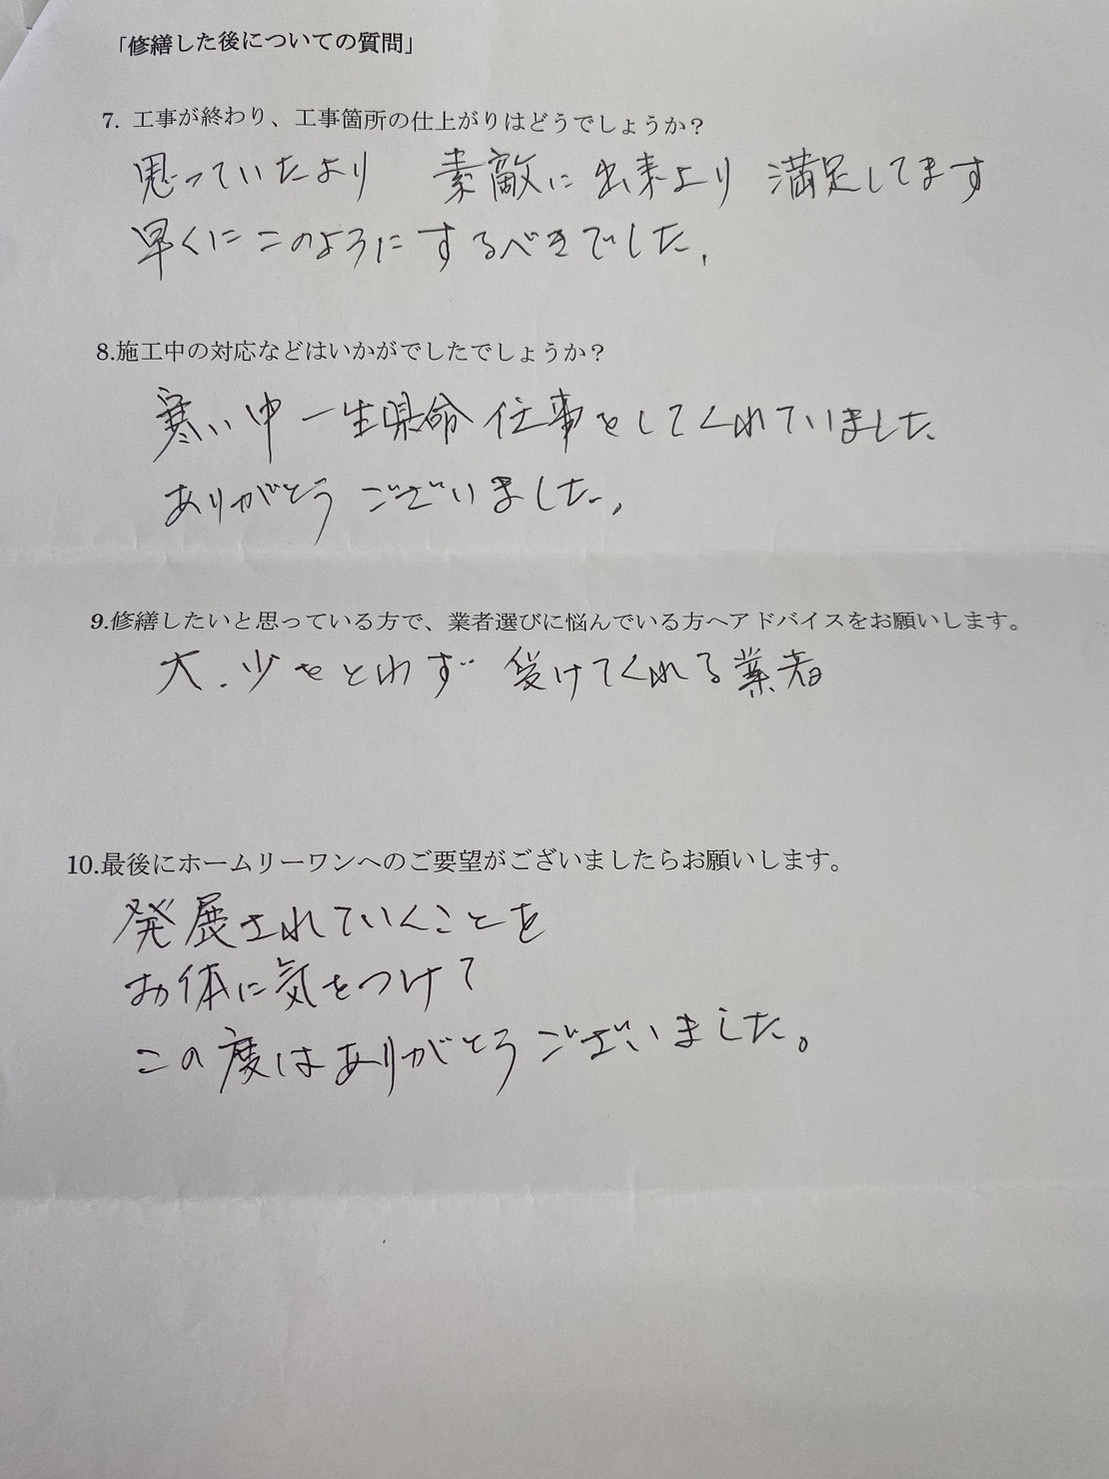 「修繕した後についての質問」
7. 工事が終わり、工事箇所の仕上がりはどうでしょうか？
思っていたより 素敵に出来より 満足してます
早くにこのようにするべきでした.
8.施工中の対応などはいかがでしたでしょうか？
寒い中 一生県命 仕事をしてくれていました
ありがとうございました。
9.修繕したいと思っている方で、業者選びに悩んでいる方へアドバイスをお願いします。
大.少をとわず 受けてくれる業者
10.最後にホームリーワンへのご要望がございましたらお願いします。
発展されていくことを
お体に気をつけて
この度はありがとうございました。